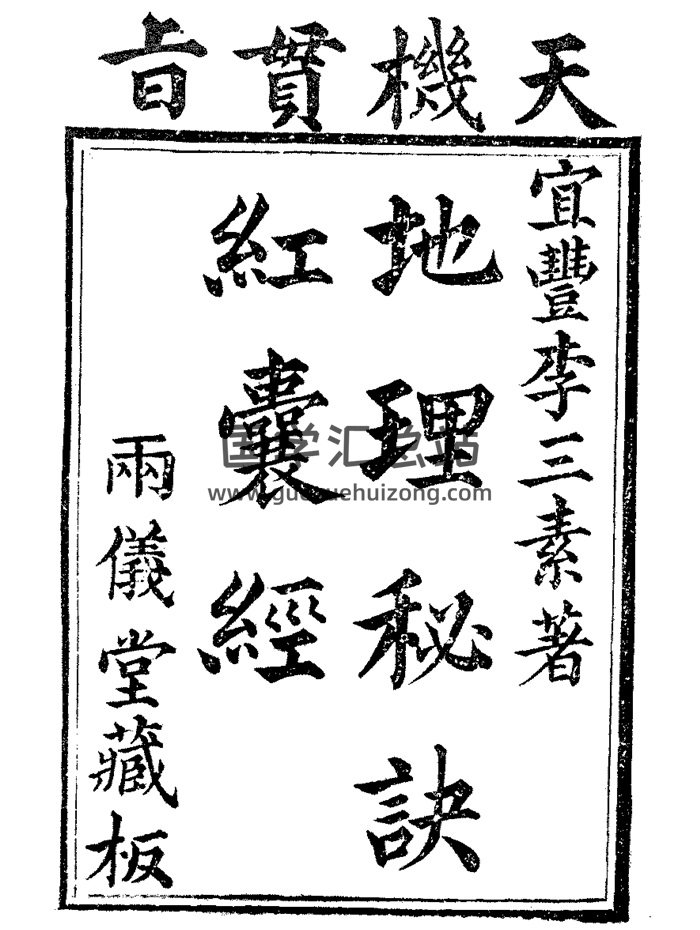 天機貫旨
宜豐李三素著
地理秘訣
紅囊經
兩儀堂藏板
国学汇总站
www.guoxuehuizong.com